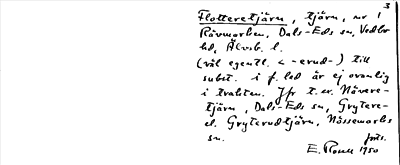 3
Flotteretjärn, tjärn, nr 1
Rävmarken, Dals-Eds sn, Vedbo
hd, Älvsb. l.
(väl egentl. < -erud-) till
subst. i f. led är ej ovanlig
i trakten. Jfr t. ex. Nävere-
tjärn, Dals-Eds sn, Grytere-
el. Gryterudtjärn, Nössemarks
sn.
forts.
E. 1950